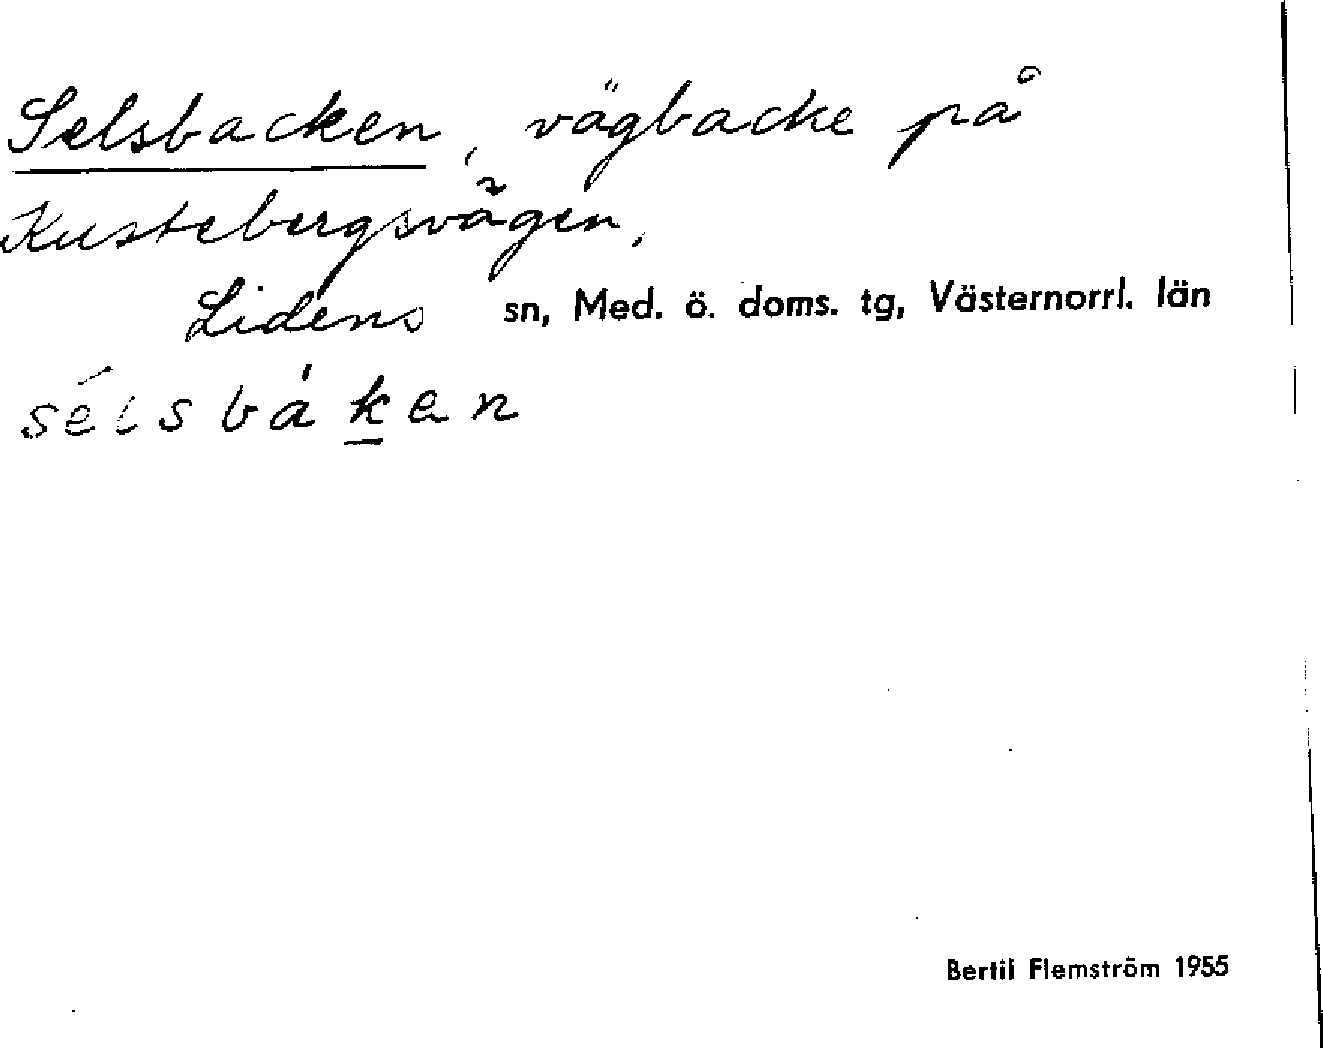 Selsbacken, vägbacke på
Kustebergsvägen,
Lidens sn, Med. ö. doms. tg, Västernorrl. län
sélsbáken
Bertil Flemström 1955